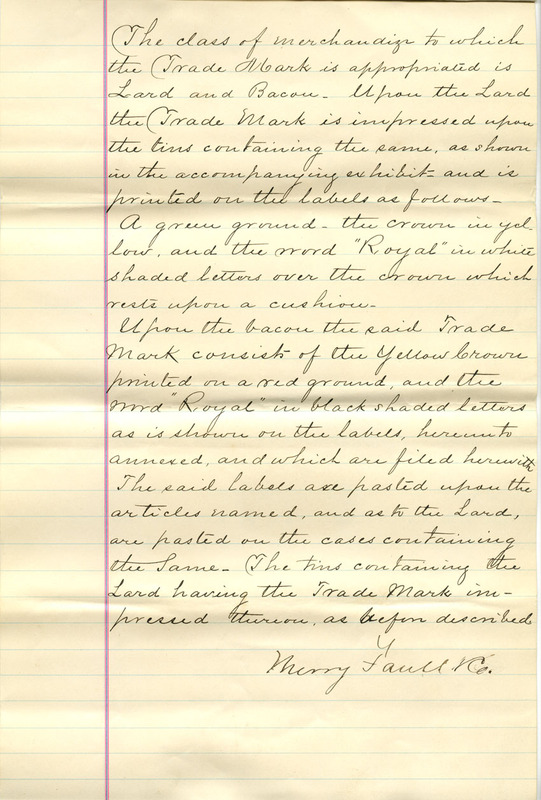 The class of merchandize to which
the Trade Mark is appropriated is
Lard and Bacon - Upon the Lard
the Trade Mark is impressed upon
the tins containing the same, as shown
in the accompanying exhibit - and is
printed on the labels as follows -
A green ground - the crown in yel-
low, and the word "Royal" in white
shaded letters over the crown which
rests upon a cushion -
Upon the bacon the said Trade
Mark consist of the Yellow Crown
printed on a red ground, and the
word "Royal" in black shaded letters
as is shown on the labels, hereunto
annexed, and which are filed herewith
The said labels are pasted upon the
articles named, and as to the Lard,
are pasted on the cases containing
the Same - The tins containing the
Lard having the Trade Mark im-
pressed thereon, as before described
Merry Faull & Co.